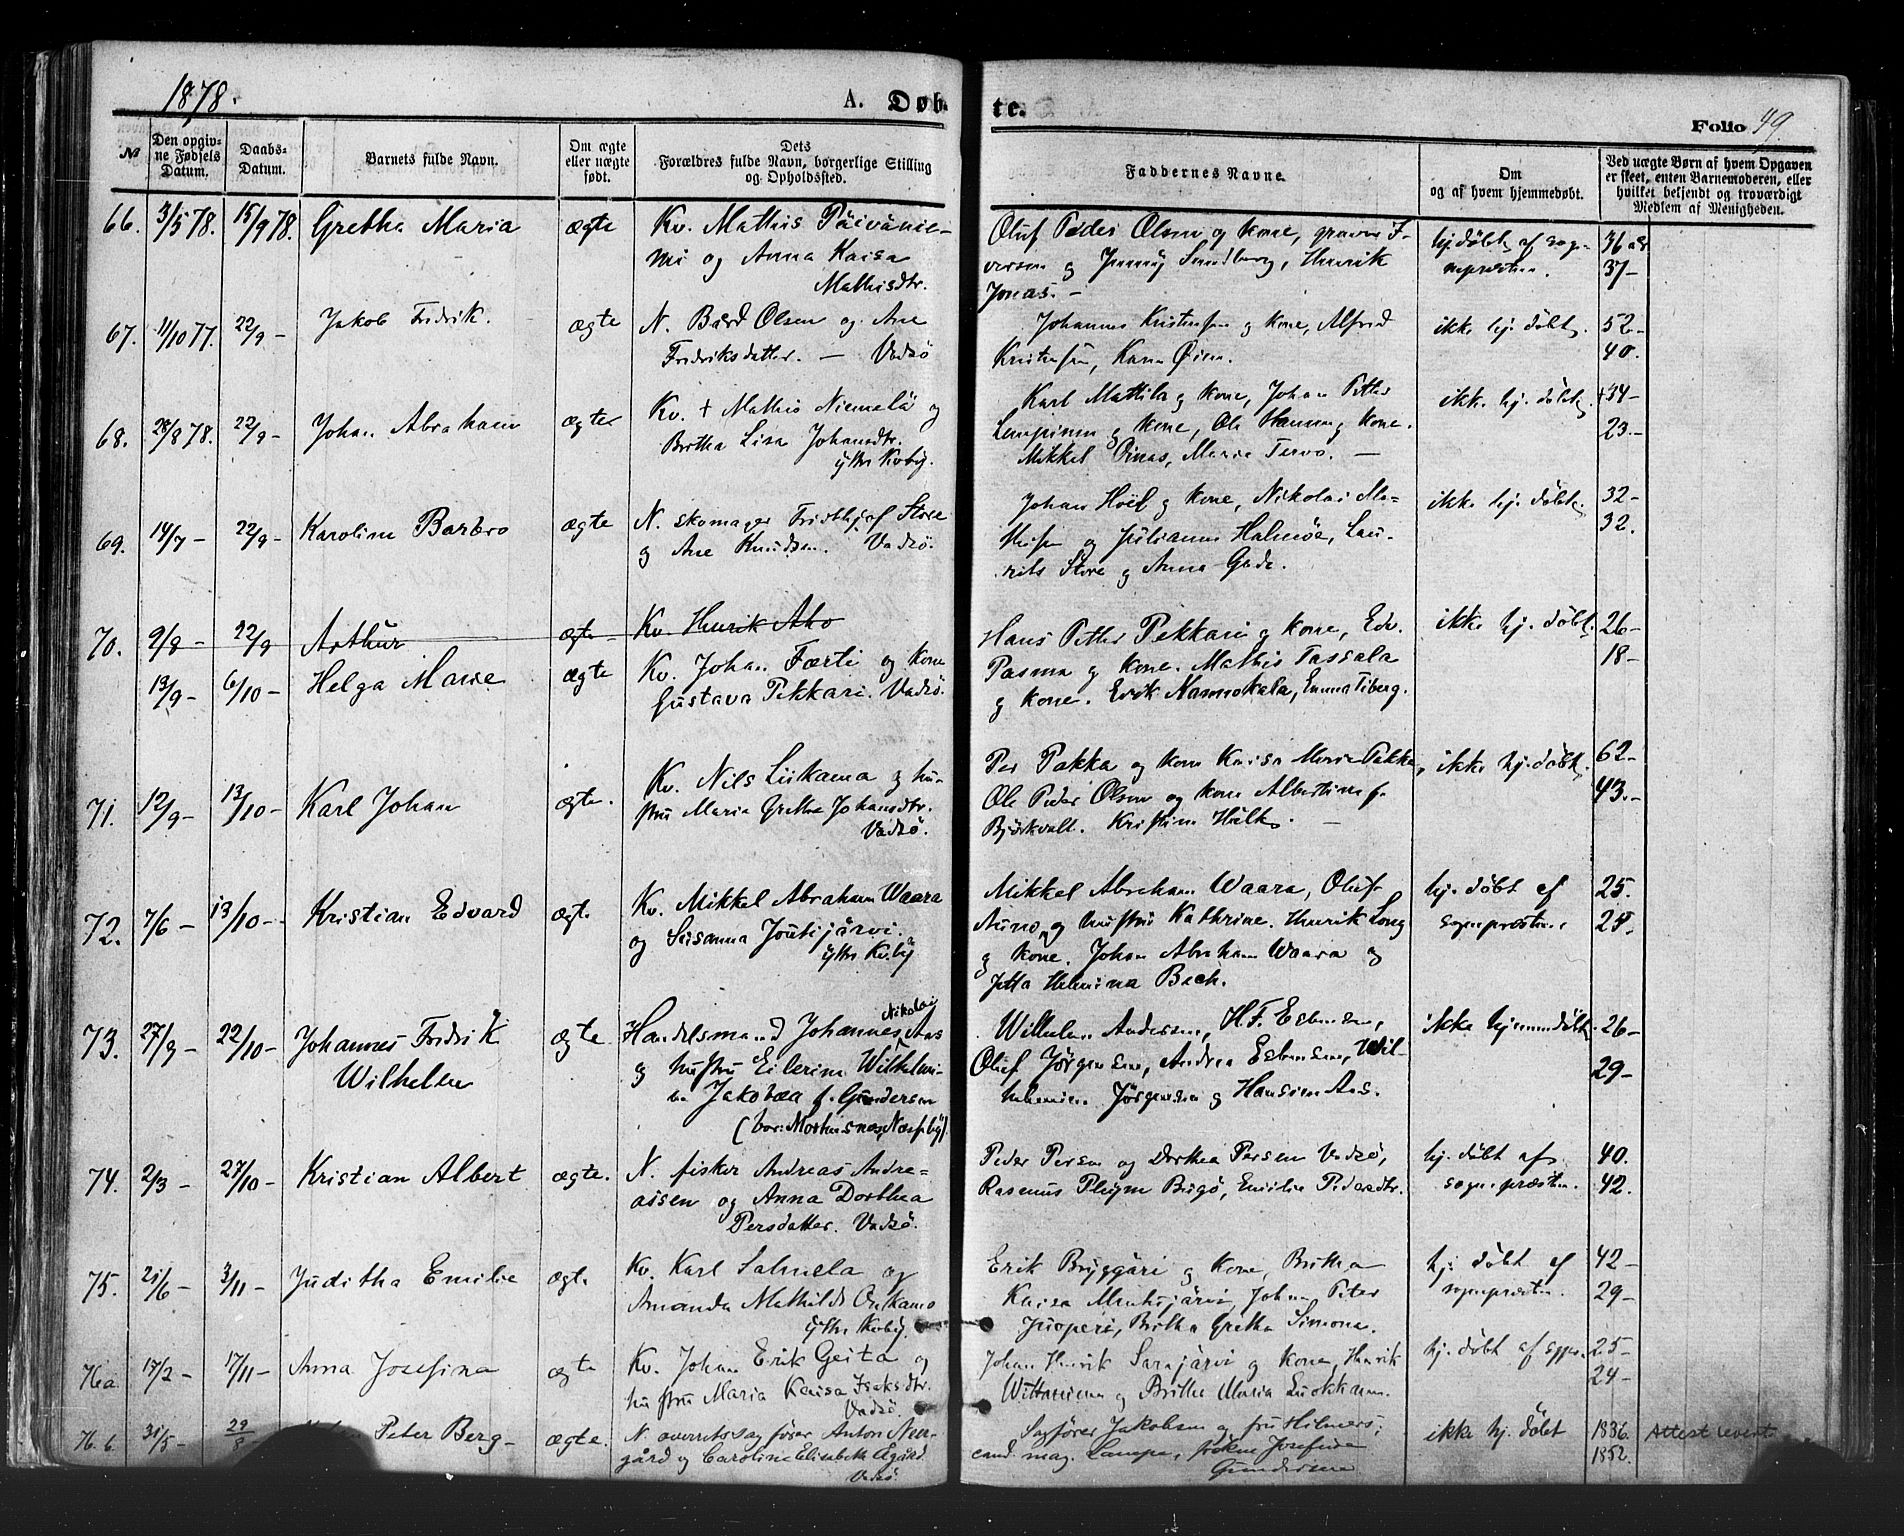 1878.
A. Døb-
te.
Folio 49
№
Den opgiv-
ne Fødsels
Datum.
Daabs-
Datum.
Barnets fulde Navn.
Om ægte
eller uægte
født.
Dets
Forældres fulde Navn, borgerlige Stilling
og Opholdssted.
Faddernes Navne.
Om
og af hvem hjemmedøbt.
Ved uægte Børn af hvem Opgaven
er skeet, enten Barnemoderen, eller
hvilket bekjendt og troværdigt
Medlem af Menigheden.
66. 3/5 78. 15/9 78. Gretha Maria ægte
Kv. Mathis Päivänie-
mi og Anna Kaisa
Mathisdtr.
Oluf Peder Olsen og kone, graver I-
versen og Jenny Sundberg, Henrik
Jonas. -
hj. døbt af sog-
nepræsten.
36 aar
37-
67. 11/10 77. 22/9 - Jakob Fredrik. ægte
N. Bård Olsen og Ane
Fredriksdatter. - Vadsö
Johannes Kristensen og kone, Alfred
Kristensen, Karen Øien.
ikke hj. døbt.
52-
40.
68. 28/8 78. 22/9 - Johan Abraham ægte
Kv. + Mathis Niemelä og
Britha Lisa Johansdtr.
ytre Kvby.
Karl Mattila og kone, Johan Petter
Lempinen og kone, Ole Hannu og kone.
Mikkel Oinas, Maria Tervo. -
ikke hj. døbt.
+34-
23.-
69. 14/7 - 22/9 - Karoline Barbro ægte
N. skomager Fridthjof Store
og Ane Knudsen. Vadsö.
Johan Hoël og kone, Nikolai Ma-
thisen og Julianne Halmöe, Lau-
rits Store og Anna Gade.
ikke hj. døbt.
32-
32.
70. 9/8 - 22/9 Arthur ægte Kv. Henrik Aho
13/9 - 6/10 - Helga Marie ægte
Kv. Johan Færti og kone
Gustava Pekkari. Vadsö.
Hans Petter Pekkari og kone, Edv.
Pasma og kone. Mathis Tassala
og kone. Erik Nammokala, Emma Tiberg.
ikke hj. døbt.
26-
18-
71. 12/9 - 13/10 - Karl Johan ægte.
Kv. Nils Liikama og hu-
stru Maria Gretha Johansdtr.
Vadsö.
Per Pakka og kone Kaisa Maria Pakka,
Ole Peder Olsen og kone Albertine f.
Björkvalt. Kristine Hulk. -
ikke hj. døbt.
62-
43.-
72. 7/6 - 13/10 - Kristian Edvard ægte
Kv. Mikkel Abraham Waara
og Susanna Joutijärvi.
ytre Kvby
Mikkel Abraham Waara, Oluf
Auno og hustru Kathrine. Henrik Long
og kone. Johan Abraham Waara og
Jetta Helmina Bech.
hj. døbt af
sognepræsten.
25.
25.
73. 27/9 - 22/10 - Johannes Fredrik
Wilhelm
ægte.
Handelsmand Johannes Nikolai Aas
og hustru Eilerina Wilhelmi-
ne Jakobæa f. Gundersen
Wilhelm Andersen, H. F. Esbensen,
Oluf Jörgensen, Andrea Esbensen, Wil-
helmine Jörgensen og Hansine Aas.
ikke hjemmedøbt
26-
29-
74. 2/3 - 27/10 - Kristian Albert ægte.
N. fisker Andreas Andre-
assen og Anna Dorthea
Persdatter. Vadsö.
Peder Persen og Dorthea Persen Vadsö,
Rasmus Plhym Brigö, Emilie Pedersdtr.
hj. døbt af
sognepræsten.
40.
42.
75. 21/6 - 3/11 - Juditha Emilie ægte
Kv. Karl Salmela og
Amanda Mathilde Onkamo
ytre Kvby.
Erik Bryggäri og kone, Britha
Kaisa Mentijärvi, Johan Peter
Juoperi, Britha Gretha Simona.
hj. døbt af
sognepræsten.
42-
29-
76a 17/2 - 17/11 - Anna Josefina ægte
Kv. Johan Erik Geita og
hustru Maria Kaisa Isaksdtr.
Vadsö.
Johan Henrik Sarajärvi og kone, Henrik
Wittaniemi og Britha Maria Luokkanen.
hj. døbt af sgpr.
25-
24-
76.b 31/5 - 29/8 Peter Berg- ægte.
N. overretssagfører Anton Neer-
gård og Caroline Elisabeth Ægård
Vadsö
Sagfører Jakobsen og fru Hilmers,
cand. mag. Lampe, frøken Josefine
Gundersen
ikke hj. døbt
1836.
1852.
Attest levert